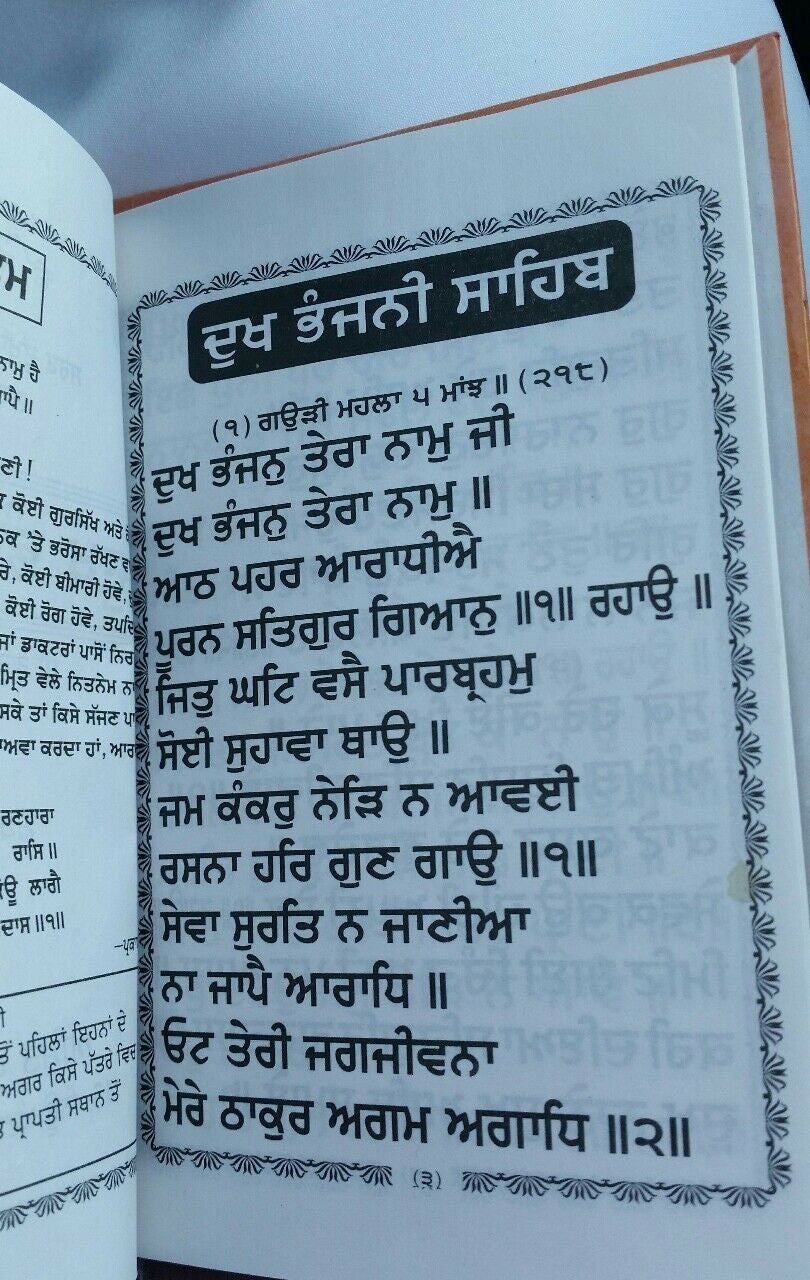 ਾਮ
ਨਾਮੁ ਹੈ
ਕੋਈ ਗੁਰਸਿੱਖ ਅਤੇ
'ਤੇ ਭਰੋਸਾ ਰੱਖਣ
ਕੋਈ ਬੀਮਾਰੀ ਹੋਵੇ,
ਕੋਈ ਰੋਗ ਹੋਵੇ,
ਜਾਂ ਡਾਕਟਰਾਂ ਪਾਸੋਂ
ਵੇਲੇ ਨਿਤਨੇਮ
ਸਕੇ ਤਾਂ ਕਿਸੇ ਸੱਜਣ
ਕਰਦਾ ਹਾਂ,
ਰਣਹਾਰਾ
ਰਾਸਿ॥
ਲਾਗੈ
ਦਾਸ॥੧॥
ਤੋਂ ਪਹਿਲਾਂ ਇਹਨਾਂ ਦੇ
ਅਗਰ ਕਿਸੇ ਪੱਤਰੇ ਵਿਚ
ਪ੍ਰਾਪਤੀ ਸਥਾਨ ਤੋਂ
ਦੁਖ ਭੰਜਨੀ ਸਾਹਿਬ
(੧) ਗਉੜੀ ਮਹਲਾ ੫ ਮਾਂਝ॥ (੨੧੮)
ਦੁਖ ਭੰਜਨੁ ਤੇਰਾ ਨਾਮੁ ਜੀ
ਦੁਖ ਭੰਜਨੁ ਤੇਰਾ ਨਾਮੁ ॥
ਆਠ ਪਹਰ ਆਰਾਧੀਐ
ਪੂਰਨ ਸਤਿਗੁਰ ਗਿਆਨੁ ॥੧॥ ਰਹਾਉ ॥
ਜਿਤੁ ਘਟਿ ਵਸੈ ਪਾਰਬ੍ਰਹਮੁ
ਸੋਈ ਸੁਹਾਵਾ ਥਾਉ ॥
ਜਮ ਕੰਕਰੁ ਨੇੜਿ ਨ ਆਵਈ
ਰਸਨਾ ਹਰਿ ਗੁਣ ਗਾਉ ॥੧॥
ਸੇਵਾ ਸੁਰਤਿ ਨ ਜਾਣੀਆ
ਨਾ ਜਾਪੈ ਆਰਾਧਿ ॥
ਓਟ ਤੇਰੀ ਜਗਜੀਵਨਾ
ਮੇਰੇ ਠਾਕੁਰ ਅਗਮ ਅਗਾਧਿ ॥੨॥
(੩)